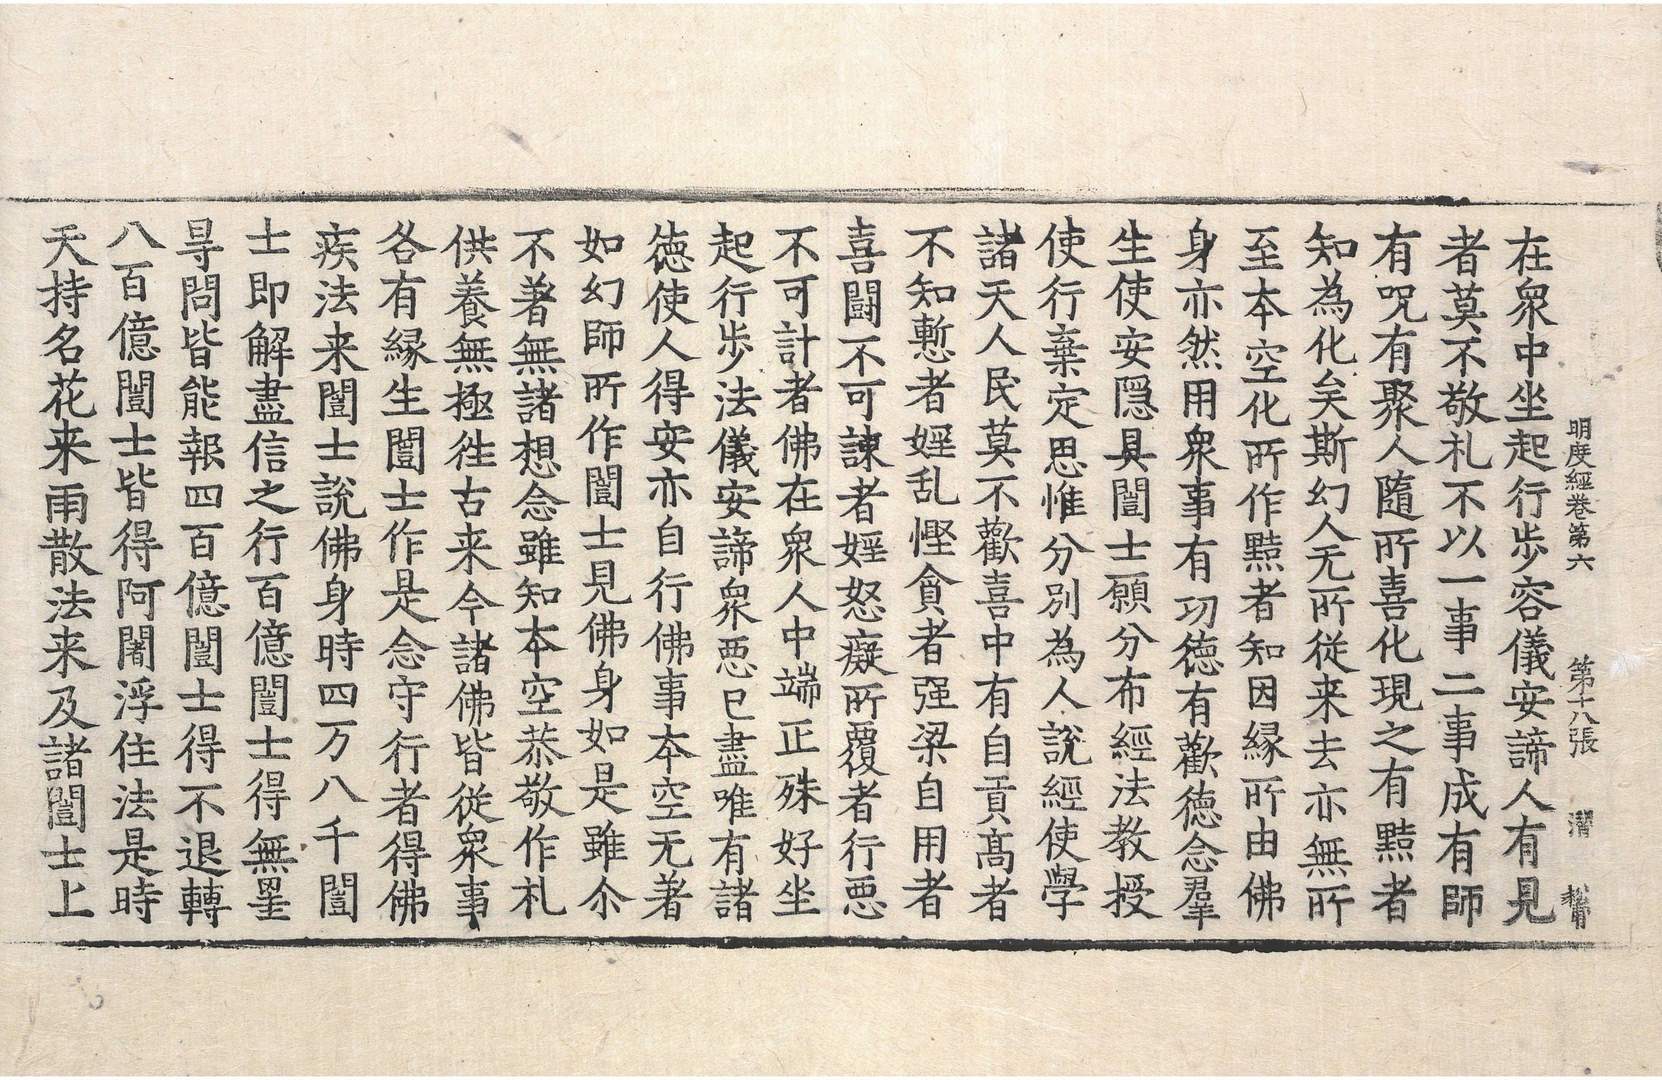 明度経卷第六 第十八張 潛
在衆中坐起行步容儀安諦人有見
者莫不敬札不以一事二事成有師
有呪有聚人隨所喜化現之有黠者
知為化矣斯幻人无所従来去亦無所
至本空化所作黠者知因縁所由佛
身亦然用衆事有功徳有歡徳念羣
生使安隠具闓士願分布經法教授
使行棄定思惟分別為人說經使學
諸天人民莫不歡喜中有自貢髙者
不知慙者婬乱慳貪者强梁自用者
喜鬪不可諫者婬怒癡所覆者行惡
不可計者佛在衆人中端正殊好坐
起行步法儀安諦衆惡已盡唯有諸
徳使人得安亦自行佛事本空无著
如幻師所作闓士見佛身如是雖尒
不著無諸想念雖知本空恭敬作札
供養無極徃古来今諸佛皆従衆事
各有縁生闓士作是念守行者得佛
疾法来闓士說佛身時四万八千闓
士即解盡信之行百億闓士得無罣
㝵問皆能報四百億闓士得不退轉
八百億闓士皆得阿闍浮住法是時
天持名花来雨散法来及諸闓士上